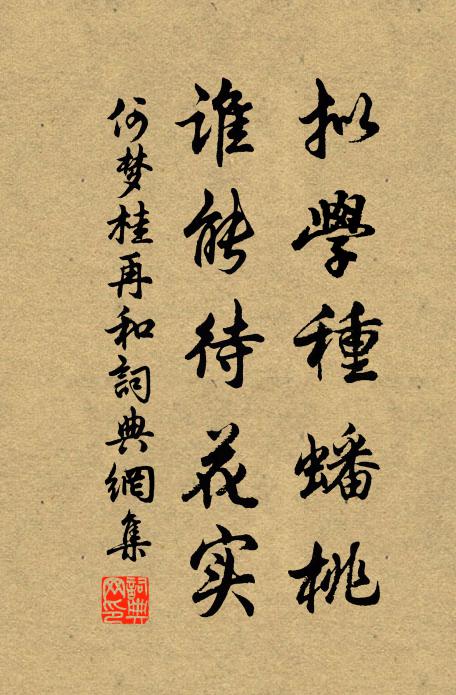 拟學種蟠桃
誰能待花实
何梦桂再和詞典網集
詞典网印